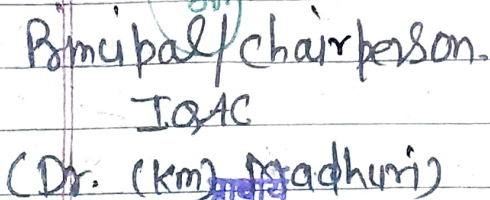 Principal/chairperson.
IQAC
(Dr. (Km) Madhuri)